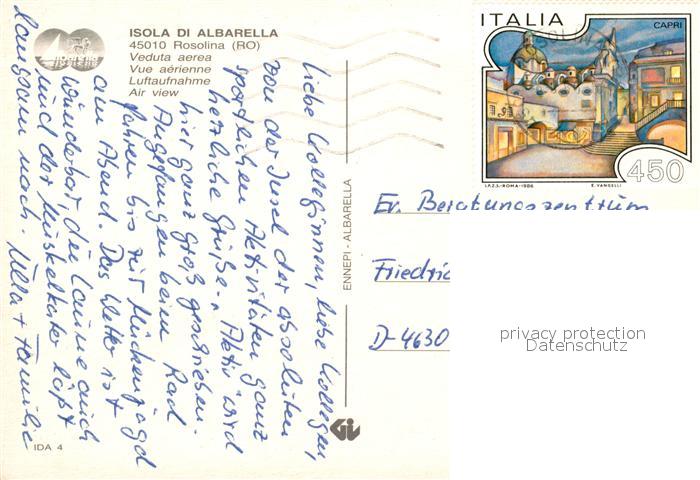 ISOLA DI ALBARELLA
45010 Rosolina (RO)
Veduta aerea
Vue aérienne
Luftaufnahme
Air view
ITALIA
CAPRI
450
I.P.Z.S.-ROMA-1986
E. VANGELLI
liebe Kolleginnen, liebe Kollegen,
von der Insel der absoluten
sportlichen Aktivitäten ganz
herzliche Grüße. Aktiv wird
hier ganz groß geschrieben.
Angefangen beim Rad
fahren bis zur Mückenjagd
am Abend. Das Wetter ist
wunderbar, die Laune auch
und der Muskelkater läßt
langsam nach. Ulla + Familie
ENNEPI - ALBARELLA
Gi
Ev. Beratungszentrum
Friedric
D-4630
privacy protection
Datenschutz
IDA 4